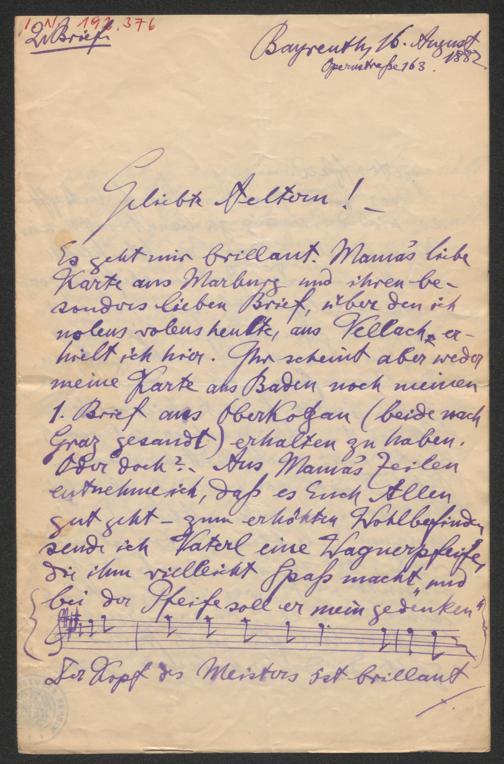 I. N. 192.376
2. Brief.
Bayreuth, 16. August
1882.
Opernstraße 163.
Geliebte Aeltern! –
Es geht mir brillant. Mama's liebe
Karte aus Marburg und ihren be-
sonders lieben Brief, über den ich
nolens volens heulte, aus Vellach, er-
hielt ich hier. Ihr scheint aber weder
meine Karte aus Baden noch meinen
1. Brief aus Oberkotzau (beide nach
Graz gesandt) erhalten zu haben.
Oder doch? – Aus Mama's Zeilen
entnehme ich, daß es Euch Allen
gut geht – zum erhöhten Wohlbefinden
sende ich Vaterl eine Wagnerpfeife,
die ihm vielleicht Spaß macht, und
bei der Pfeife soll er mein "gedenken"
Der Kopf des Meisters ist brillant